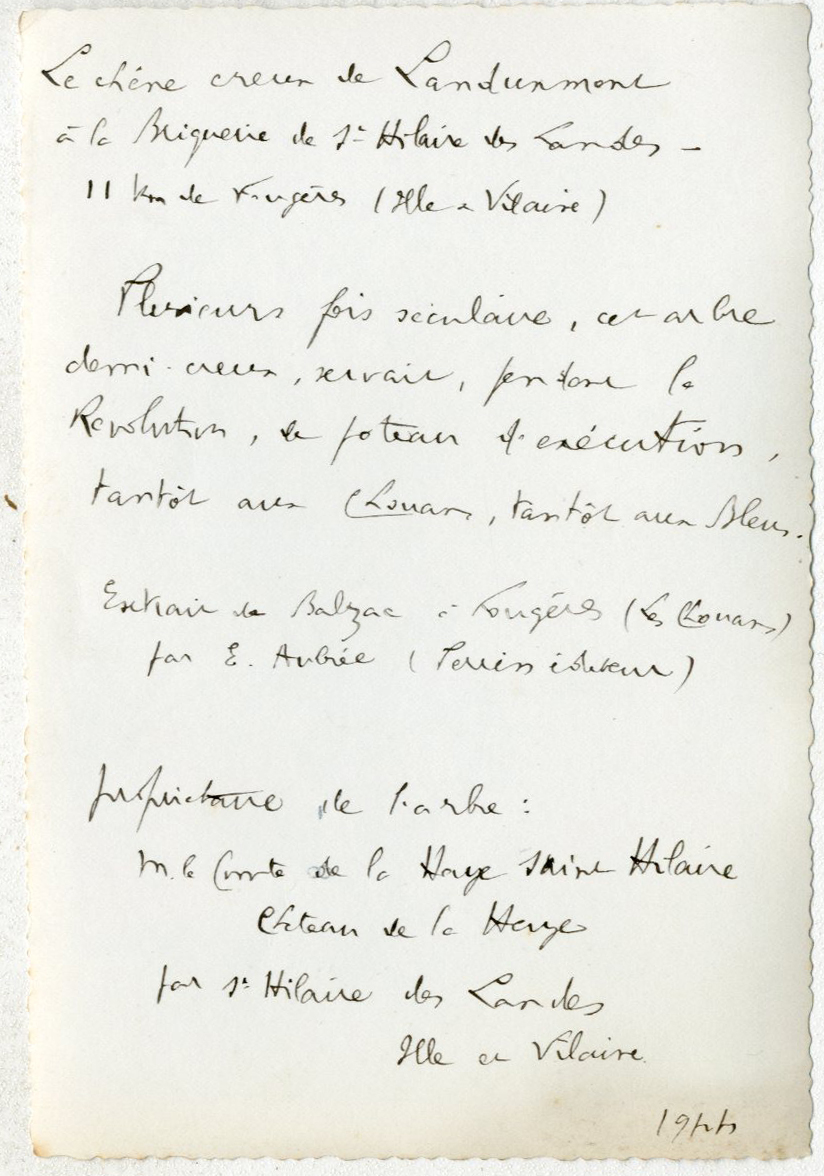 Le chêne creux de Landunmont
à la Briquerie de St Hilaire des Landes -
11 km de Fougères (Ille et Vilaire)
Plusieurs fois séculaire, cet arbre
demi-creux, servait, pendant la
Révolution, de poteau d'exécution,
tantôt aux Chouans, tantôt aux Bleus.
Extrait de Balzac à Fougères (Les Chouans)
par E. Aubrée (Perrin éditeur)
propriétaire de l'arbre :
M. le Comte de la Haye Saint Hilaire
Château de la Haye
par St Hilaire des Landes
Ille et Vilaine
1944